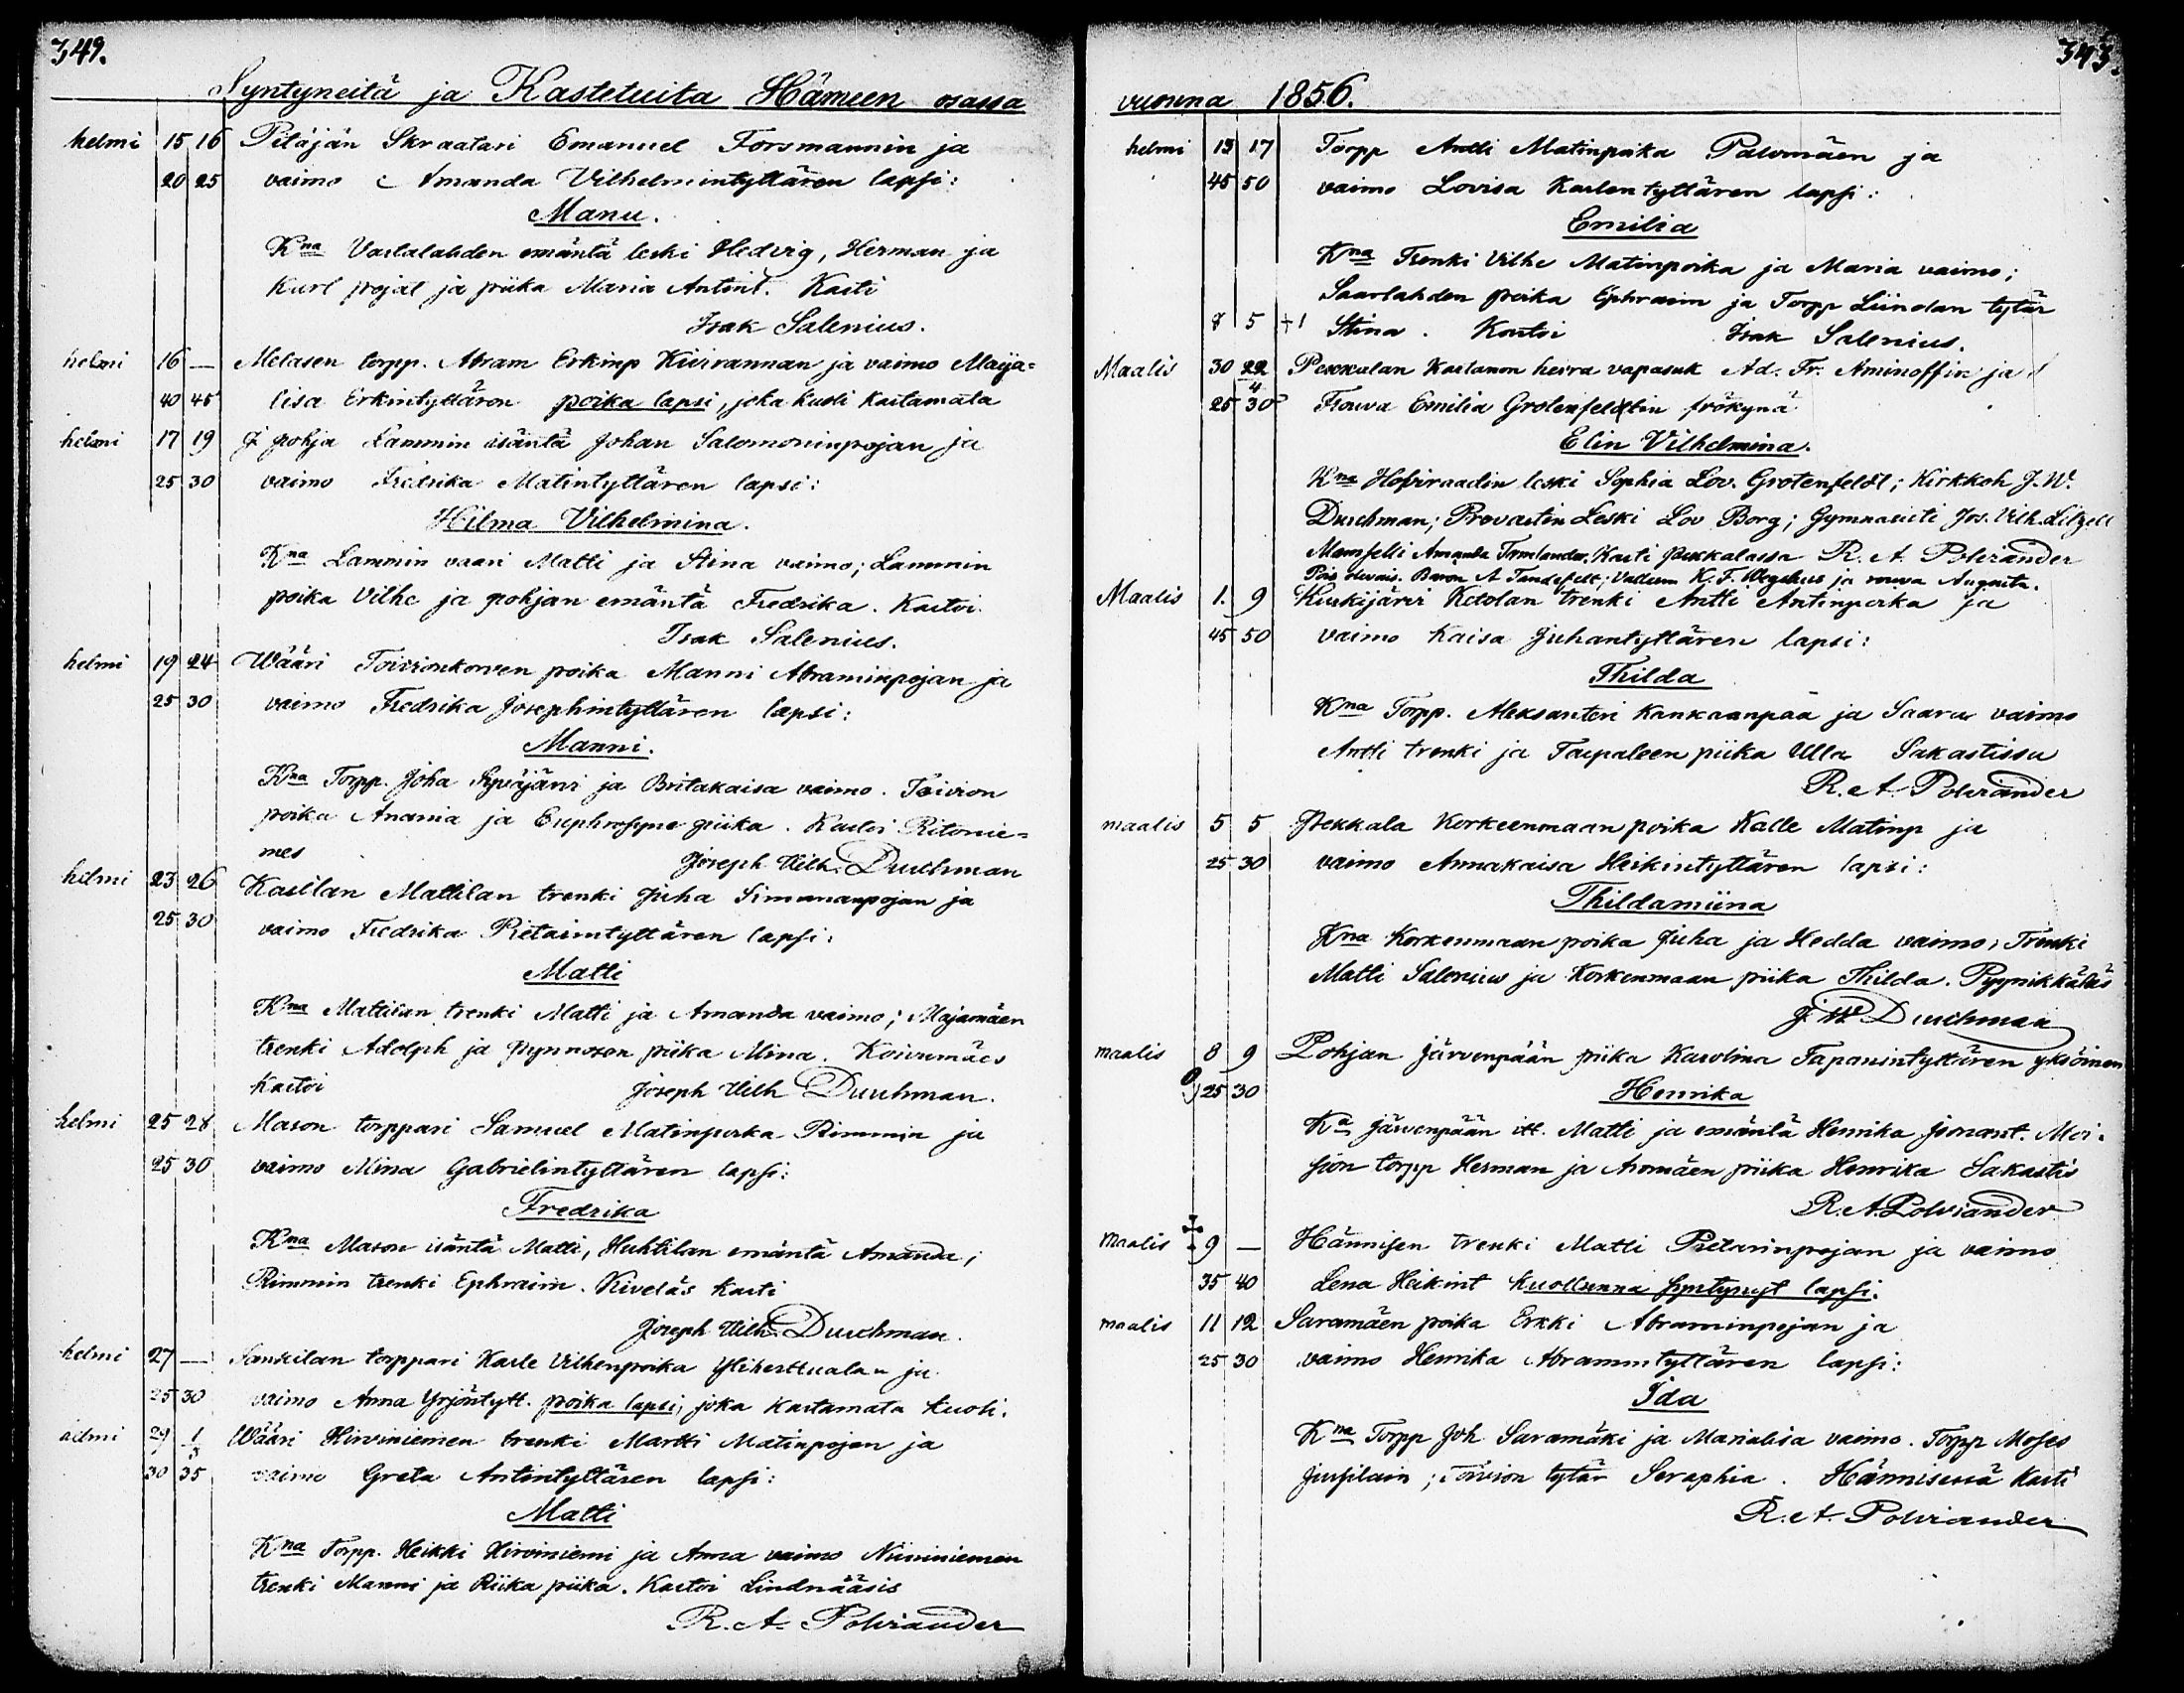 349.
Syntyneitä ja Kastetuita Hämeen osassa
helmi 15 16 Pitäjän Skraatari Emanuel Forsmannin ja
20 25 vaimo Amanda Vilhelmintyttären lapsi:
Manu.
Kna Vastalahden emäntä leski Hedvig, Herman ja
Kurl pojat ja piika Maria Antint. Kasti
Isak Salenius.
helmi 16 — Metasen torpp. Abram Erkinp Kivirannan ja vaimo Maija-
40 45 lisa Erkintyttären poika lapsi, joka kuoli kastamata
helmi 17 19 J pohja Lammin isäntä Johan Salomoninpojan ja
25 30 vaimo Fredrika Matintyttären lapsi:
Hilma Vilhelmina.
Kna Lammin vaari Matti ja Stina vaimo; Lammin
poika Vilhe ja pohjan emäntä Fredrika. Kastoi
Isak Salenius.
helmi 19 24 Wääri Toivionkorven poika Manni Abraminpojan ja
25 30 vaimo Fredrika Josephintyttären lapsi:
Manni.
Kna Torpp. Joha Syväjärvi ja Britakaisa vaimo. Toivion
poika Anania ja Euphrosyne piika. Kastoi Ritonie-
mes Joseph Vilh. Durchman
helmi 23 26 Kastilan Mattilan trenki Juha Simunanpojan ja
25 30 vaimo Fredrika Pietarintyttären lapsi:
Matti
Kna Mattilan trenki Matti ja Amanda vaimo; Majamäen
trenki Adolph ja Pynnosen piika Mina. Koivumäes
kastoi Joseph Vilh Durchman.
helmi 25 28 Mason torppari Samuel Matinpoika Rimmin ja
25 30 vaimo Mina Gabrielintyttären lapsi:
Fredrika
Kna Mason isäntä Matti, Huhtilan emäntä Amanda;
Rimmin trenki Ephraim. Kiveläs kasti
Joseph Vilh. Durchman.
helmi 27 — torppari Kalle Vilhenpoika Yliherttualan ja
25 30 vaimo Anna Yrjöntytt. poika lapsi, joka kastamata kuoli.
helmi 29 1/3 Wääri Hirviniemen trenki Martti Matinpojan ja
30 35 vaimo Greta Antintyttären lapsi:
Matti
Kna Torpp. Heikki Hirviniemi ja Anna vaimo Niininiemen
trenki Manni ja Riika piika. Kastoi Lindnääsis
R. A. Polviander
343.
vuonna 1856.
helmi 13 17 Torpp Antti Matinpoika Palomäen ja
45 50 vaimo Lovisa Kaslentyttären lapsi:
Emilia
Kna Trenki Vilhe Matinpoika ja Maria vaimo;
Saarlahden poika Ephraim ja Torpp Liindan tytär
8 5 +1 Stina. Kastoi Isak Salenius.
Maalis 30 22/4 Pekkalan Kartanon herra vapasuk Ad. Fr. Aminoffin ja
25 30 Frouva Emilia Grotenfeldtin frökynä
Elin Vilhelmina.
Kna Hoviraadin leski Sophia Lov. Grotenfeldt; Kirkkoh J. W.
Durchman; Provastin Leski Lov Borg; Gymnasisti Jos. Vilh. Litzell
Mamselli Amanda Kasti Pekkalassa R. A. Polviander
Pois olevais. Baron A Tandefelt; K. F. ja rouva Augusta.
Maalis 1. 9 Kuskijärvi Ketolan trenki Antti Antinpoika ja
45 50 vaimo Kaisa Juhantyttären lapsi:
Thilda
Kna Torpp. Aleksanteri Kankaanpää ja Saara vaimo
Antti trenki ja Taipaleen piika Ulla Sakastissa
R. A. Polviander
maalis 5 5 Pekkala Korkeenmaan poika Kalle Matinp ja
25 30 vaimo Annakaisa Heikintyttären lapsi:
Thildamiina
Kna Korkenmaan poika Juha ja Hedda vaimo, Trenki
Matti Salenius ja Korkenmaan piika Thilda. Pyynikkäläs
J. W. Durchman
maalis 8 9 Pohjan Järvenpään piika Karolina Tapanintyttären yksöinen
25 30 Henrika
Ka Järvenpään itt. Matti ja emäntä Henrika Joonant. Moi-
sion torpp Herman ja Aromäen piika Henrika Sakastis
R. A. Polviander
Maalis 9 — Hännisen trenki Matti Pietarinpojan ja vaimo
35 40 Lena Heikint kuollunna syntynyt lapsi.
maalis 11 12 Saramäen poika Erkki Abraminpojan ja
25 30 vaimo Henrika Abramintyttären lapsi:
Ida
Kna Torpp Joh Saramäki ja Marialisa vaimo. Torpp Moses
Jussilain; Toivion tytär Seraphia. Hännisessä kasti
R. A. Polviander